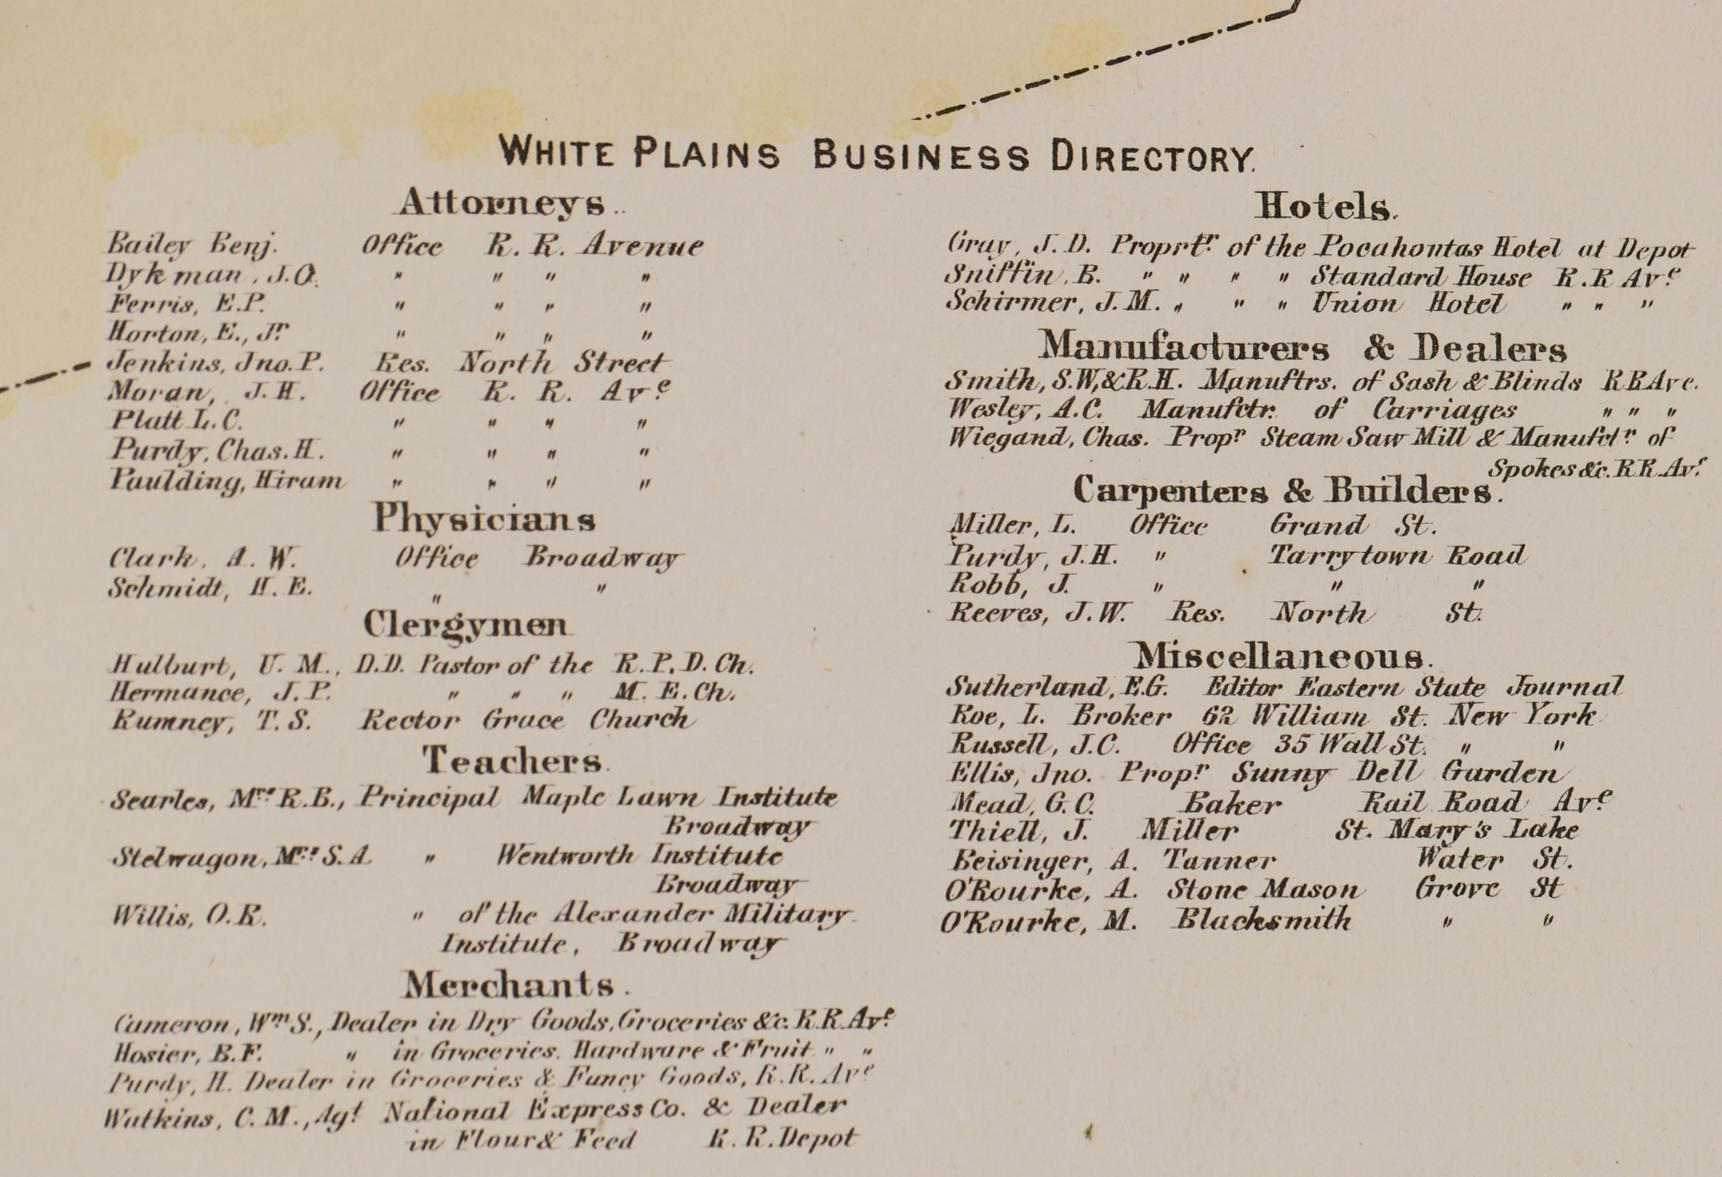 WHITE PLAINS BUSINESS DIRECTORY.
Attorneys.
Bailey Benj. Office R. R. Avenue
Dykman, J.O. " " " "
Ferris, E.P. " " " "
Horton, E., Jr " " " "
Jenkins, Jno. P. Res. North Street
Moran, J. H. Office R. R. Ave
Platt L. C. " " " "
Purdy, Chas. H. " " " "
Paulding, Hiram " " " "
Physicians
Clark, A. W. Office Broadway
Schmidt, H. E. " "
Clergymen
Hulburt, U. M., D.D. Pastor of the R. P. D. Ch.
Hermance, J. P. " " " M. E. Ch.
Rumney, T. S. Rector Grace Church
Teachers.
Searles, Mrs R.B., Principal Maple Lawn Institute
Broadway
Stelwagon, Mrs S. A. " Wentworth Institute
Broadway
Willis, O. R. " of the Alexander Military
Institute, Broadway
Merchants.
Cameron, Wm S., Dealer in Dry Goods, Groceries &c. R.R. Ave
Hosier, B. F. " in Groceries, Hardware & Fruit " "
Purdy, H. Dealer in Groceries & Fancy Goods, R. R. Ave
Watkins, C. M., Agt National Express Co. & Dealer
in Flour & Feed R. R. Depot
Hotels.
Gray, J. D. Proprtr of the Pocahontas Hotel at Depot
Sniffin, B. " " " " Standard House R. R Ave
Schirmer, J. M. " " " Union Hotel " " "
Manufacturers & Dealers
Smith, S.W, & R.H. Manuftrs. of Sash & Blinds R R Ave.
Wesley, A.C. Manufctr. of Carriages " " "
Wiegand, Chas. Propr Steam Saw Mill & Manufctr of
Spokes &c. R R. Ave
Carpenters & Builders.
Miller, L. Office Grand St.
Purdy, J. H. " Tarrytown Road
Robb, J. " " "
Reeves, J. W. Res. North St.
Miscellaneous.
Sutherland, E.G. Editor Eastern State Journal
Roe, L. Broker 62 William St. New York
Russell, J.C. Office 35 Wall St. " "
Ellis, Jno. Propr Sunny Dell Garden
Mead, G. C. Baker Rail Road Ave
Thiell, J. Miller St. Mary's Lake
Beisinger, A. Tanner Water St.
O'Rourke, A. Stone Mason Grove St
O'Rourke, M. Blacksmith " "